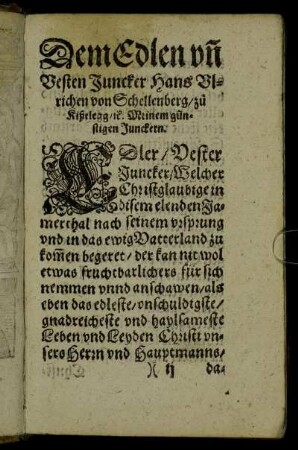 Dem Edlen vñ
Vesten Juncker Hans Vl-
richen von Schellenberg/zů
Kißlegg/ꝛc. Meinem gün-
stigen Junckern.
EDler/Vester
Juncker/Welcher
Christglaubige in
disem elenden Ja-
merthal nach seinem vrsprung
vnd in das ewig Vatterland zů
kom̃en begeret/der kan nit wol
etwas fruchtbarlichers für sich
nemmen vnnd anschawen/als
eben das edleste/vnschuldigste/
gnadreicheste vnd haylsameste
Leben vnd Leyden Christi vn-
sers Herrn vnd Hauptmanns/
ij da-